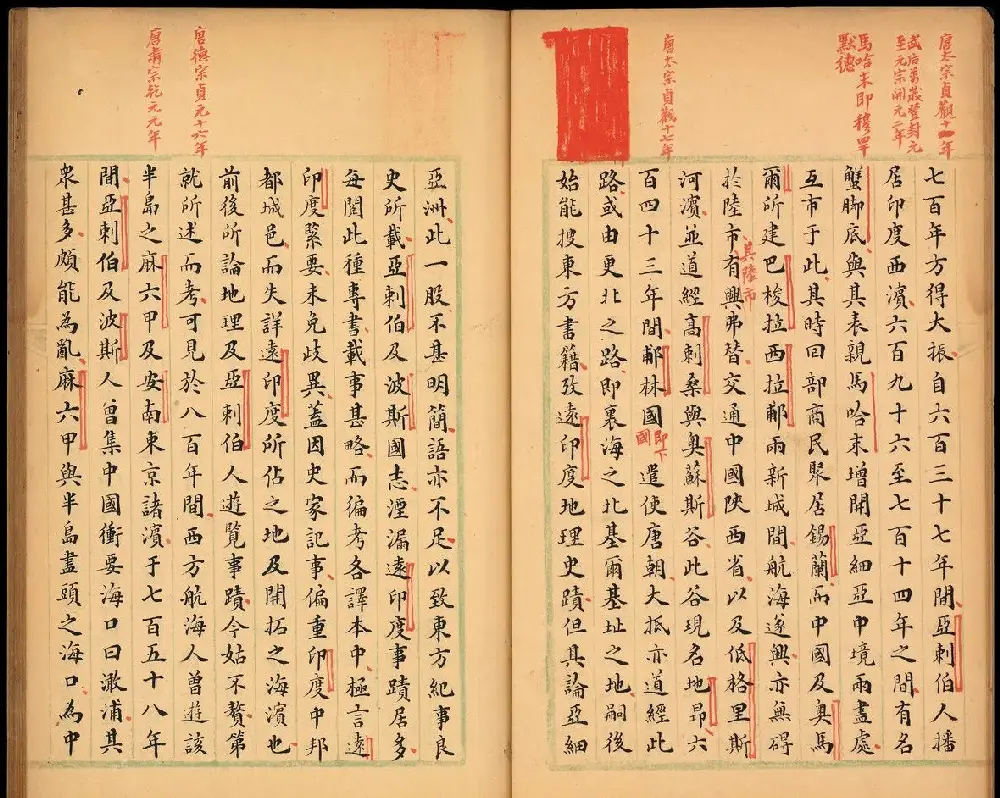 唐太宗貞觀十一年
武后萬歲登封元
至元宗開元二年
馬哈末即穆罕
默德
唐太宗貞觀十七年
七百年方得大振自六百三十七年間亞剌伯人播
居印度西濱六百九十六至七百十四年之間有名
蟹脚底與其表親馬哈末增開亞細亞中境兩盡處
互市于此其時回部商民聚居錫蘭而中國及奧馬
爾所建巴梭拉西拉鄅兩新城間航海遂興亦無碍
其陸市
於陸市有興弗替交通中國陝西省以及低格里斯
河濱並道經高刺桑與奧蘇斯谷此谷現名地昂六
百四十三年間郙林國遣使唐朝大抵亦道經此
即下國
路或由更北之路即裏海之北基爾基址之地嗣後
始能搜東方書籍攷遠印度地理史蹟但其論亞細
唐德宗貞元十六年
唐肅宗乾元元年
亞洲此一股不甚明簡語亦不足以致東方紀事良
史所載亞剌伯及波斯國志湮漏遠印度事蹟居多
每閱此種專書載事甚略而徧考各譯本中極言遠
印度緊要未免歧異蓋因史家記事偏重印度中邦
都城邑而失詳遠印度所佔之地及開拓之海濱也
前後所論地理及亞剌伯人遊覽事蹟今姑不贅第
就所述而考可見於八百年間西方航海人曾遊該
半島之麻六甲及安南東京諸濱于七百五十八年
間亞剌伯及波斯人曾集中國衝要海口曰澉浦其
衆甚多頗能為亂麻六甲與半島盡頭之海口為中